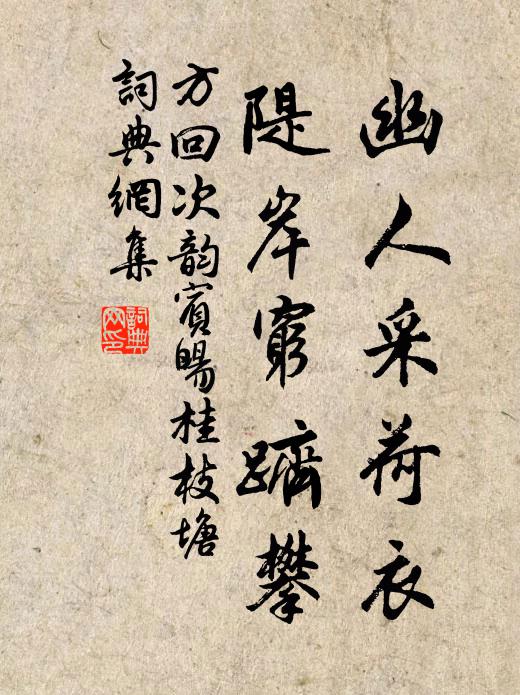 幽人采荷衣
隄岸窮躋攀
方回次韵賓暘桂枝塘
詞典網集
詞典網印